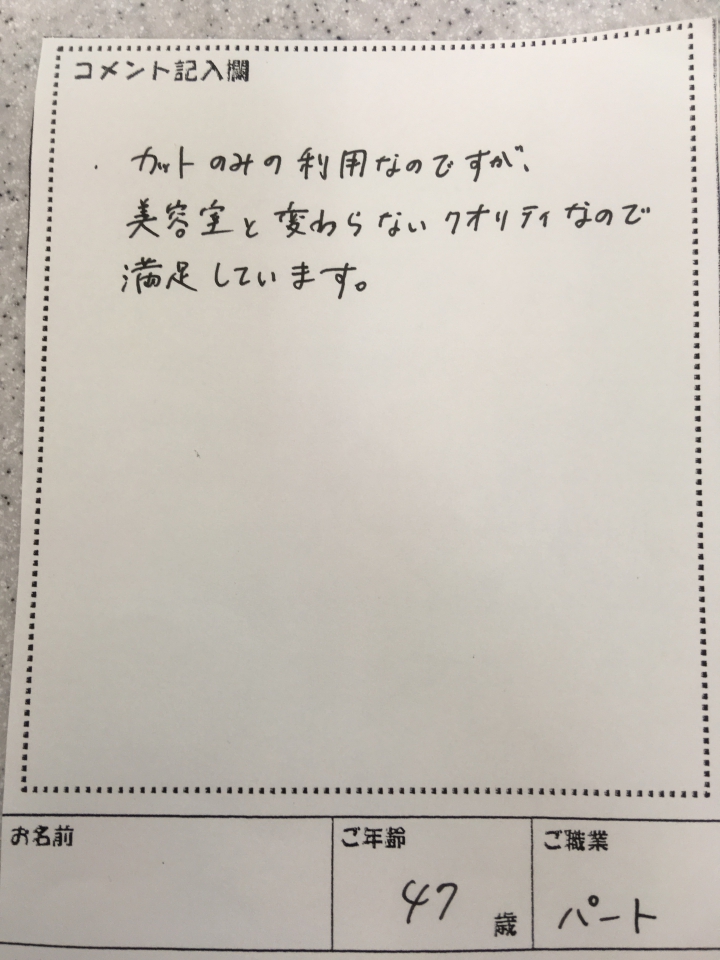 コメント記入欄
カットのみの利用なのですが、
美容室と変わらないクオリティなので
満足しています。
お名前
ご年齢
ご職業
47 歳
パート